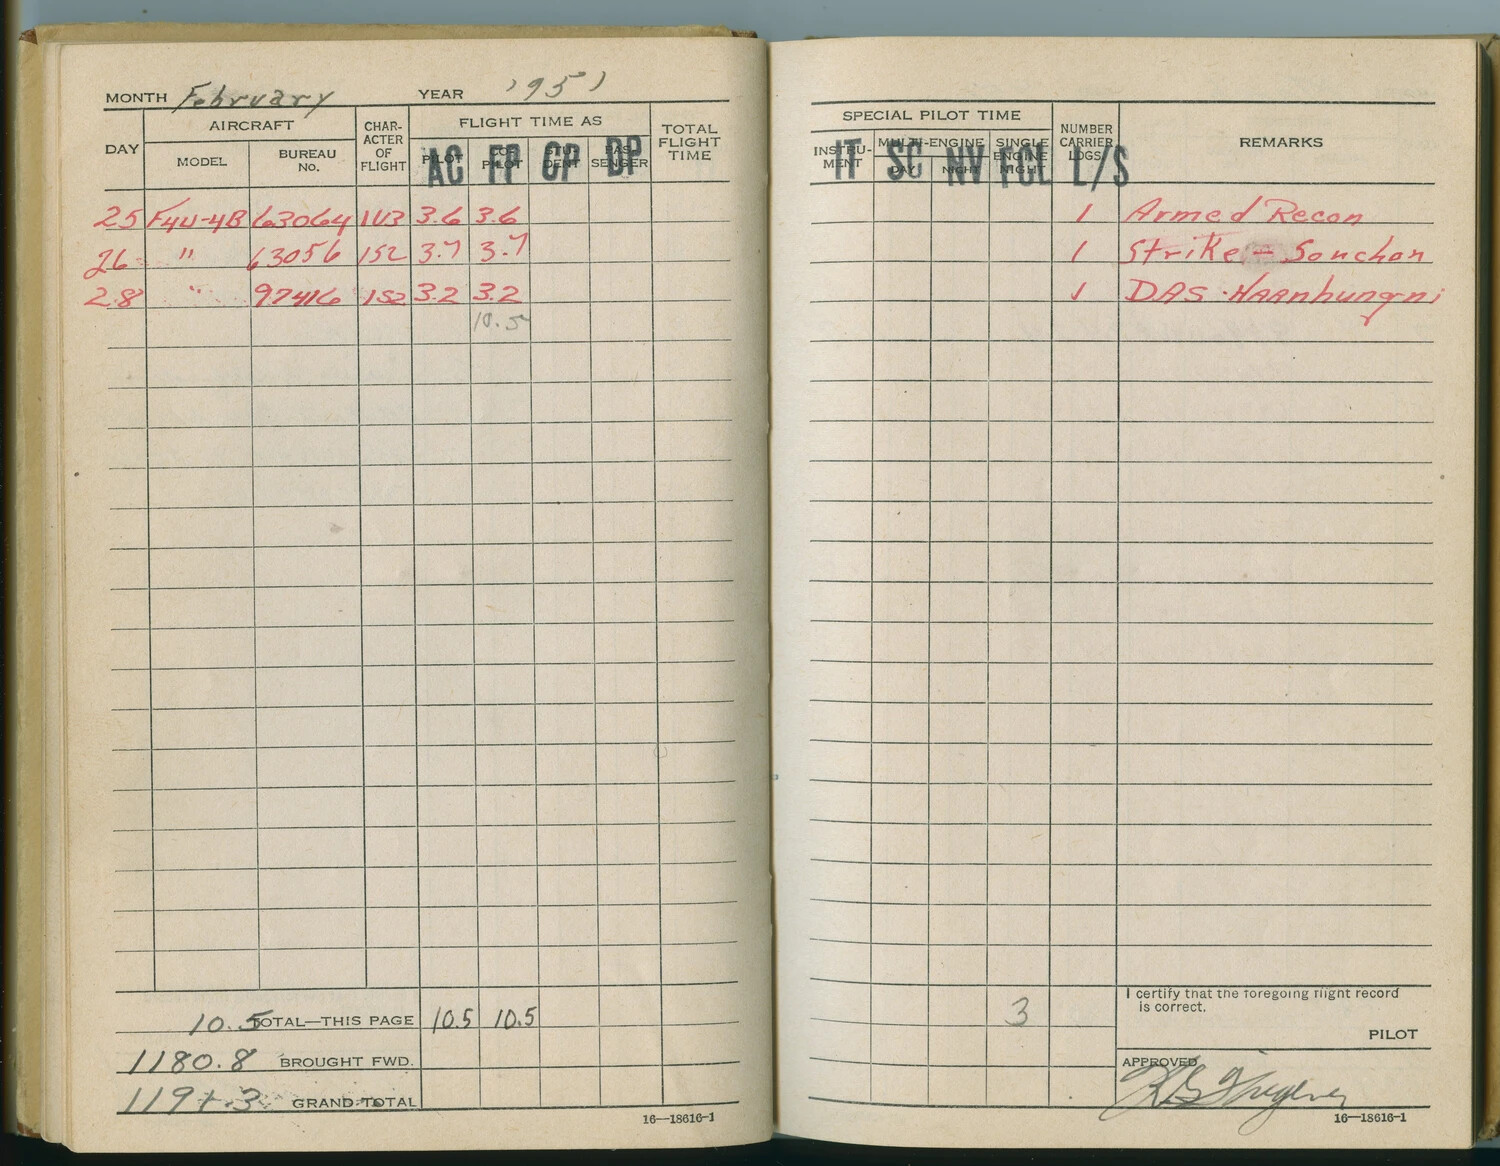 MONTH February YEAR 1951
DAY AIRCRAFT CHAR-ACTER OF FLIGHT FLIGHT TIME AS TOTAL FLIGHT TIME
MODEL BUREAU No. PILOT CO-PILOT STU-DENT PAS-SENGER
AC FP CP DP
25 F4U-4B 63064 1U3 3.6 3.6
26 " 63056 1S2 3.7 3.7
28 " 97416 1S2 3.2 3.2
10.5
10.5 TOTAL—THIS PAGE 10.5 10.5
1180.8 BROUGHT FWD.
1191.3 GRAND TOTAL
16—18616-1
SPECIAL PILOT TIME NUMBER CARRIER LDGS. REMARKS
INSTRU-MENT MULTI-ENGINE SINGLE ENGINE NIGHT
DAY NIGHT
IT SC NV FCL L/S
1 Armed Recon
1 Strike - Sonchon
1 DAS - HAAnhungni
3
I certify that the foregoing flight record
is correct.
PILOT
APPROVED
16—18616-1